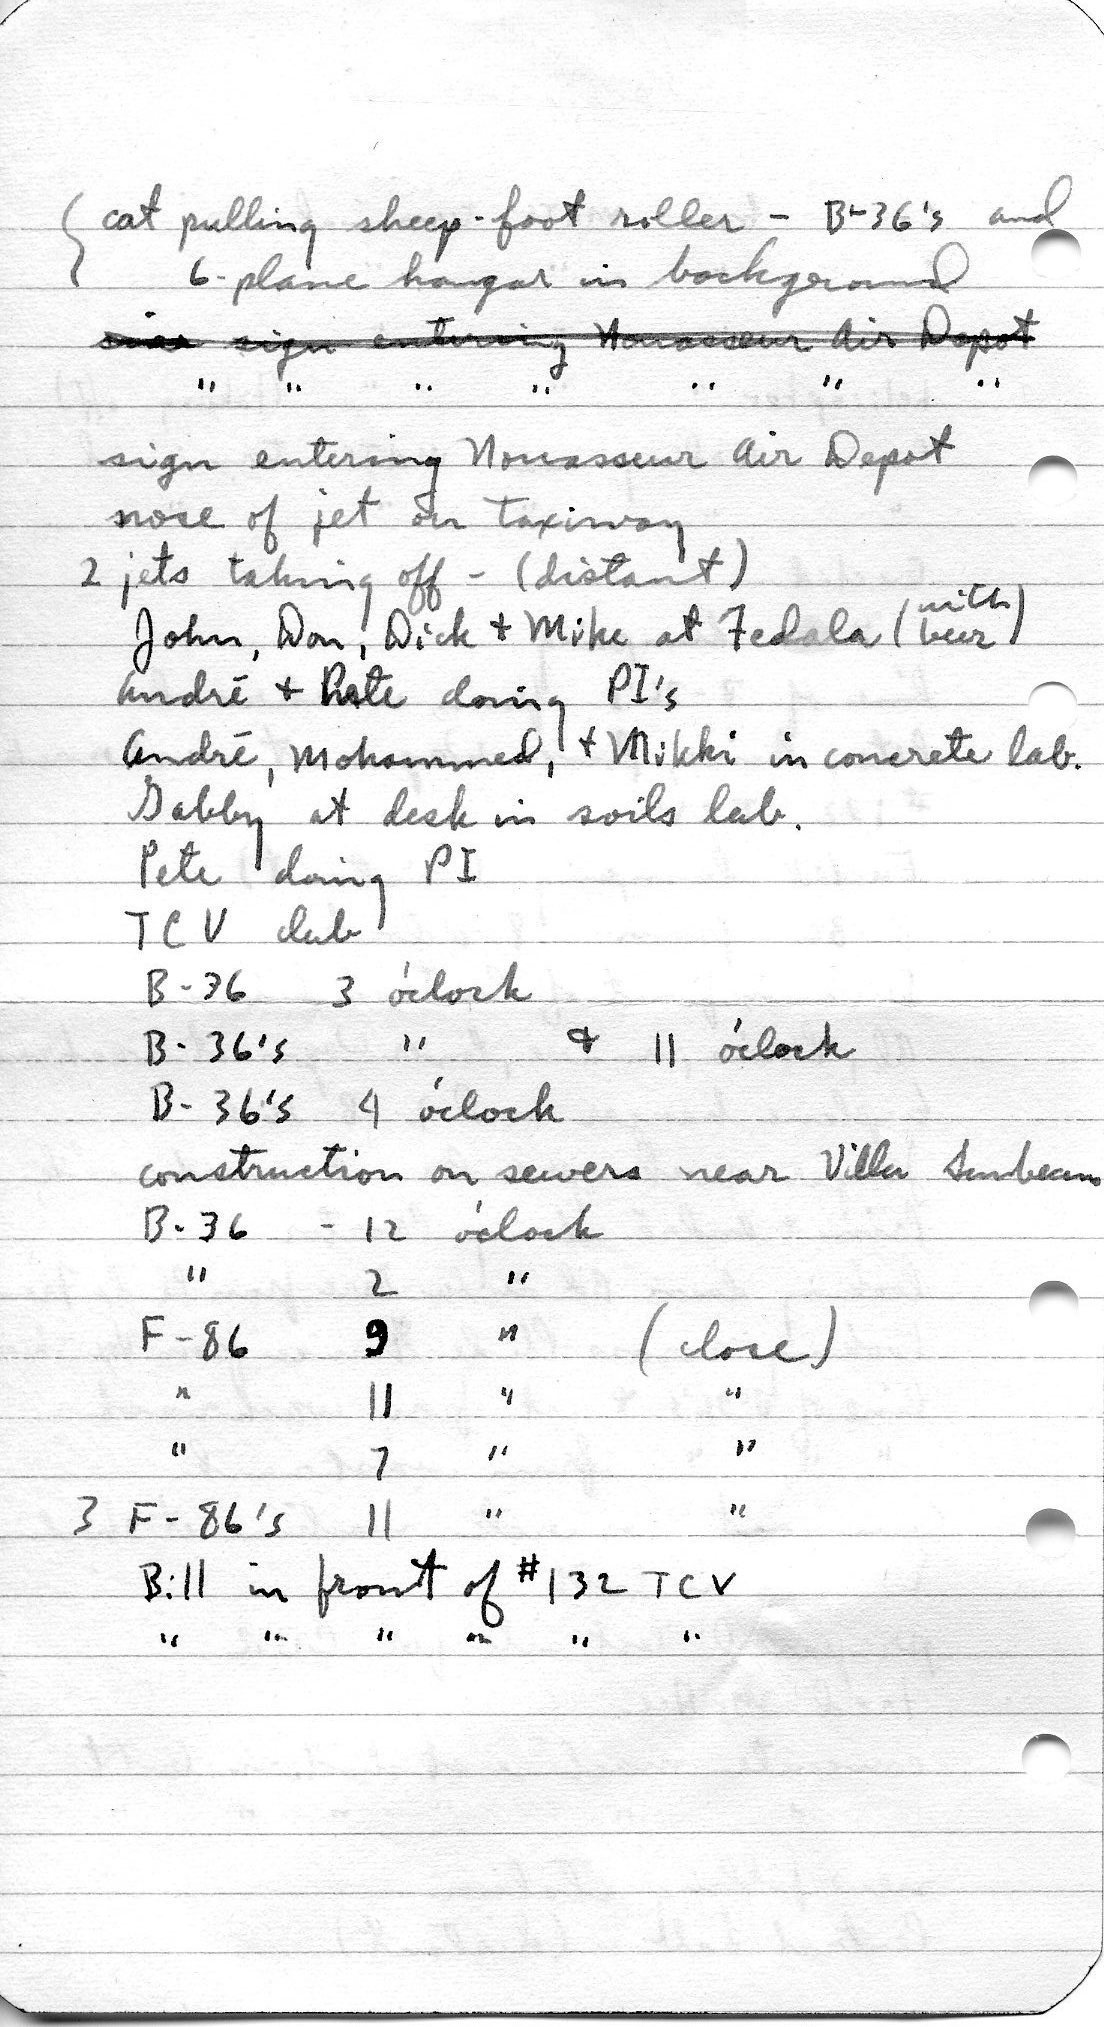 cat pulling sheep-foot roller - B-36's and
6-plane hangar in background
sign entering Nouasseur Air Depot
" " " " " " "
sign entering Nouasseur Air Depot
nose of jet on taxiway
2 jets taking off - (distant)
John, Don, Dick + Mike at Fedala (with beer)
André + Pete doing PI's
André, Mohammed, + Mikki in concrete lab.
Gabby at desk in soils lab.
Pete doing PI
TCV club
B-36 3 o'clock
B-36's " & 11 o'clock
B-36's 4 o'clock
construction on sewers near Villa Sunbeam
B-36 - 12 o'clock
" 2 "
F-86 9 " (close)
" 11 " "
" 7 " "
3 F-86's 11 " "
Bill in front of #132 TCV
" " " " " "